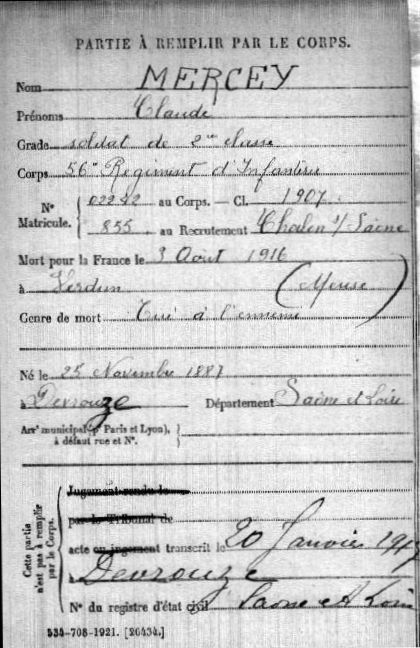 PARTIE À REMPLIR PAR LE CORPS.
Nom MERCEY
Prénoms Claude
Grade soldat de 2me classe
Corps 56e Régiment d'Infanterie
N° Matricule. { 02242 au Corps. — Cl. 1907.
855 au Recrutement Chalon s/ Saône
Mort pour la France le 3 Août 1916
à Verdun (Meuse)
Genre de mort Tué à l'ennemi
Né le 25 Novembre 1887
à Devrouze Département Saône et Loire
Arrt municipal (pr Paris et Lyon),
à défaut rue et N°.
Cette partie n'est pas à remplir par le Corps.
Jugement rendu le
par le Tribunal de
acte ou jugement transcrit le 20 Janvier 1917
à Devrouze
N° du registre d'état civil Saone et Loire
534-708-1921. [26434.]